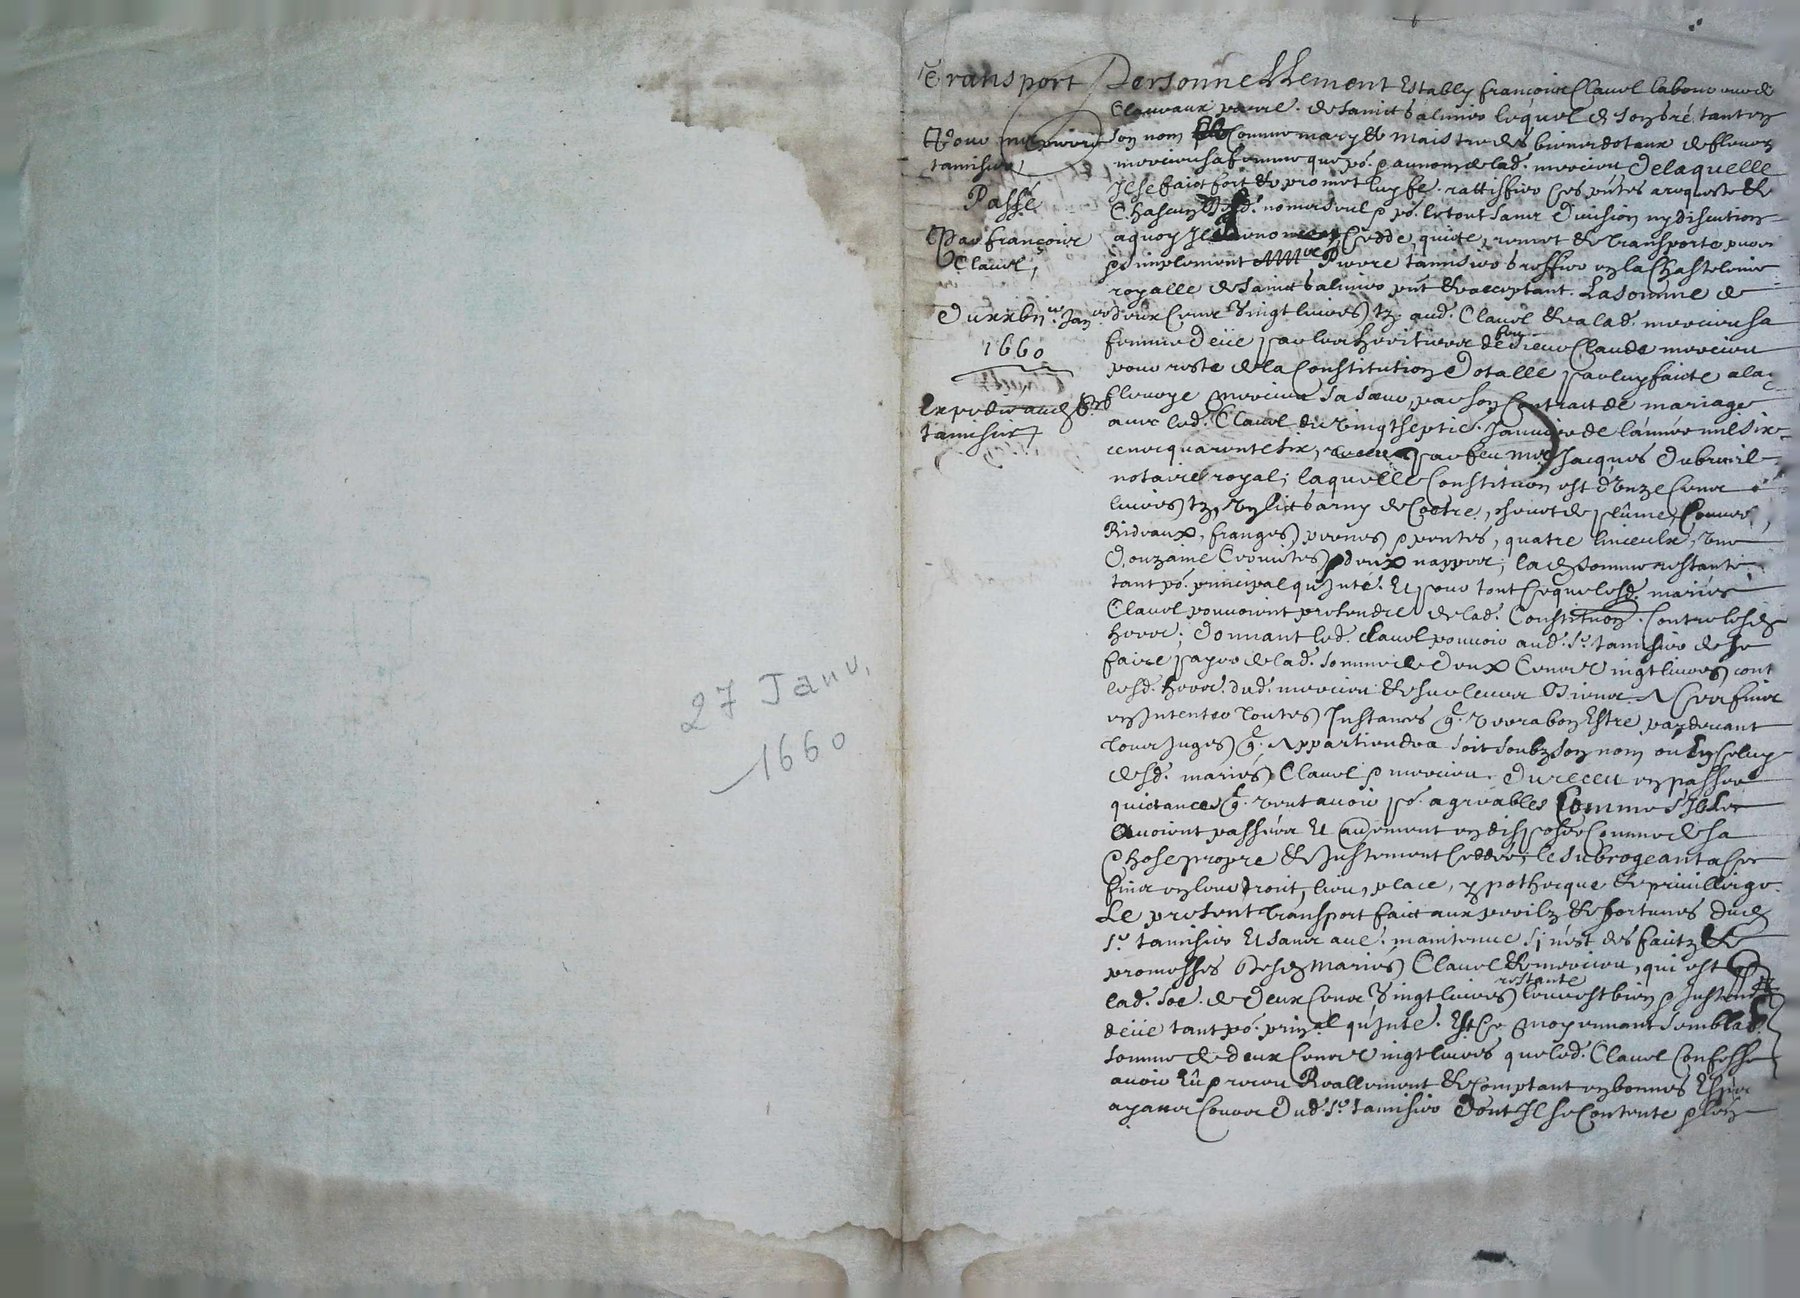 27 Janv.
1660
Transport
Pour me pierre
tamisier
Passé
Par françois
Clavel
Du xxvii Janv
1660
Expedié aud Sr
tamisier
Personnellement Estably françois Clavel laboureur de
parr. de Sainct Galmier lequel de son gré tant en
son nom Comme mary & Maistre des biens dotaux de fleurye
mercieu sa femme que po. & au nom de lad. mercieu de laquelle
Il se faict fort & promet luy fe. rattiffier ces pntes a requeste &
Chascun desd. noms seul & po. le tout sans Division ny discution
a quoy Il renonce Cedde, quitte, remet & transporte purement
& simplement Me Pierre tamisier greffier en la Chastelenie
royalle de Sainct Galmier pnt & acceptant. La somme de
deux Cens Vingt livres tz. aud. Clavel & a lad. mercieu sa
femme deüe par les heritiers de feu sieur Claude mercieu
pour reste de la Constitution Dotalle par luy faicte a lad.
fleurye mercieu sa sœur, par son Contract de mariage
avec led. Clavel du vingtseptie. Janvier de l'année mil six
cens quarente six, receu par feu Me Jacques Dubreuil
notaire royal; laquelle Constituon est d'unze Cens
livres tz, un lict garny de Coetre, chevet de plume, Couverte,
Rideaux, franges, & pentes, quatre linceulx, une
Douzaine serviettes & deux nappes; lad. somme restante
tant po. principal qu'Inté. Et pour tout ce que lesd. mariés
Clavel pouvoient pretendre de lad. Constituon. Contre lesd.
hoirs; Donnant led. Clavel pouvoir aud. Sr. tamisier de se
faire payer de lad. somme de Deux Cens Vingt livres cont.
lesd. hoirs dud. mercieu & sur leurs Biens A Ces fins
en Intenter toutes Instances q. verra bon Estre pardevant
tous Juges q. Appartiendra soit soubz son nom ou En Celuy
desd. mariés Clavel & mercieu. Du receu en passer
quictances q. veut avoir po. agreables Comme s'Ilz les
avoient passées Et autrement en disposer Comme de sa
Chose propre & Justement Ceddée; le subrogeant a Ces
fins en leur droit, lieu, place, ypotheque & privillege.
Le present transport faict aux perilz & fortunes dud.
Sr. tamisier Et sans aue. maintenue si n'est des faictz &
promesses desd mariés Clavel & mercieu, qui est
lad. soe. de Deux Cens Vingt livres restante leur est bien & Justemt
deüe tant po. prinal qu'Inté. Et Ce Moyennant semblable
somme de deux Cens Vingt livres que led. Clavel Confesse
avoir Eu & receu Reallement & Comptant en bonnes Espèces
ayans Cours Dud. Sr. tamisier Dont Il se Contente &